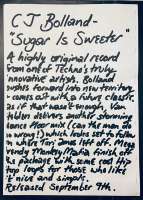 CJ Bolland-
"Sugar Is Sweeter"
A highly original record
from one of Techno's truly
innovative artists. Bolland
pushes forward into new territory
& comes out with a future classic,
as if that wasn't enough, Van
Helden delivers another storming
dance floor mix (can the man do
no wrong!) which looks set to follow
on where Tori Amos left off. Mega
trendy Monkey Mafia finish off
the package with some cool Hip
Hop loops for those who like
it nice and simple.
Released September 9th.